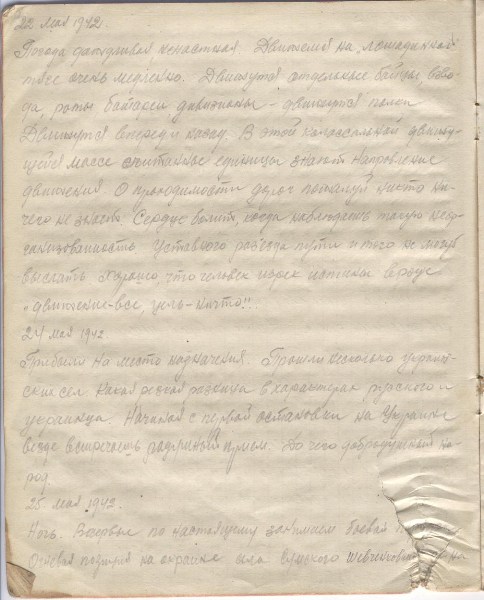 22 мая 1942.
Погода дождливая ненастная. Движемся на лошадинной
тяге очень медленно. Движутся отдельные бойцы, взво-
да, роты батареи дивизионы – движутся полки
Движутся вперед и назад. В этой колоссальной движу-
щейся массе считанные единицы знают направление
движения. О проходимости дорог пожалуй никто ни-
чего не знает. Сердце болит, когда наблюдаешь такую неор-
ганизованность. Уставного раз'езда пути и того не могут
выслать. Хорошо, что человек изрек истины вроде
"движение-все, цель-ничто"!..
24 мая 1942
Прибыли на место назначения. Прошли несколько украин-
ских сел. Какая резкая разница в характерах русского и
украинца. Начиная с первой остановки на Украине
везде встречаешь радушный прием. До чего добродушный на-
род.
25 мая 1942.
Ночь. Впервые по настоящему занимаем боевой
Огневая позиция на окраине села Шевченково на